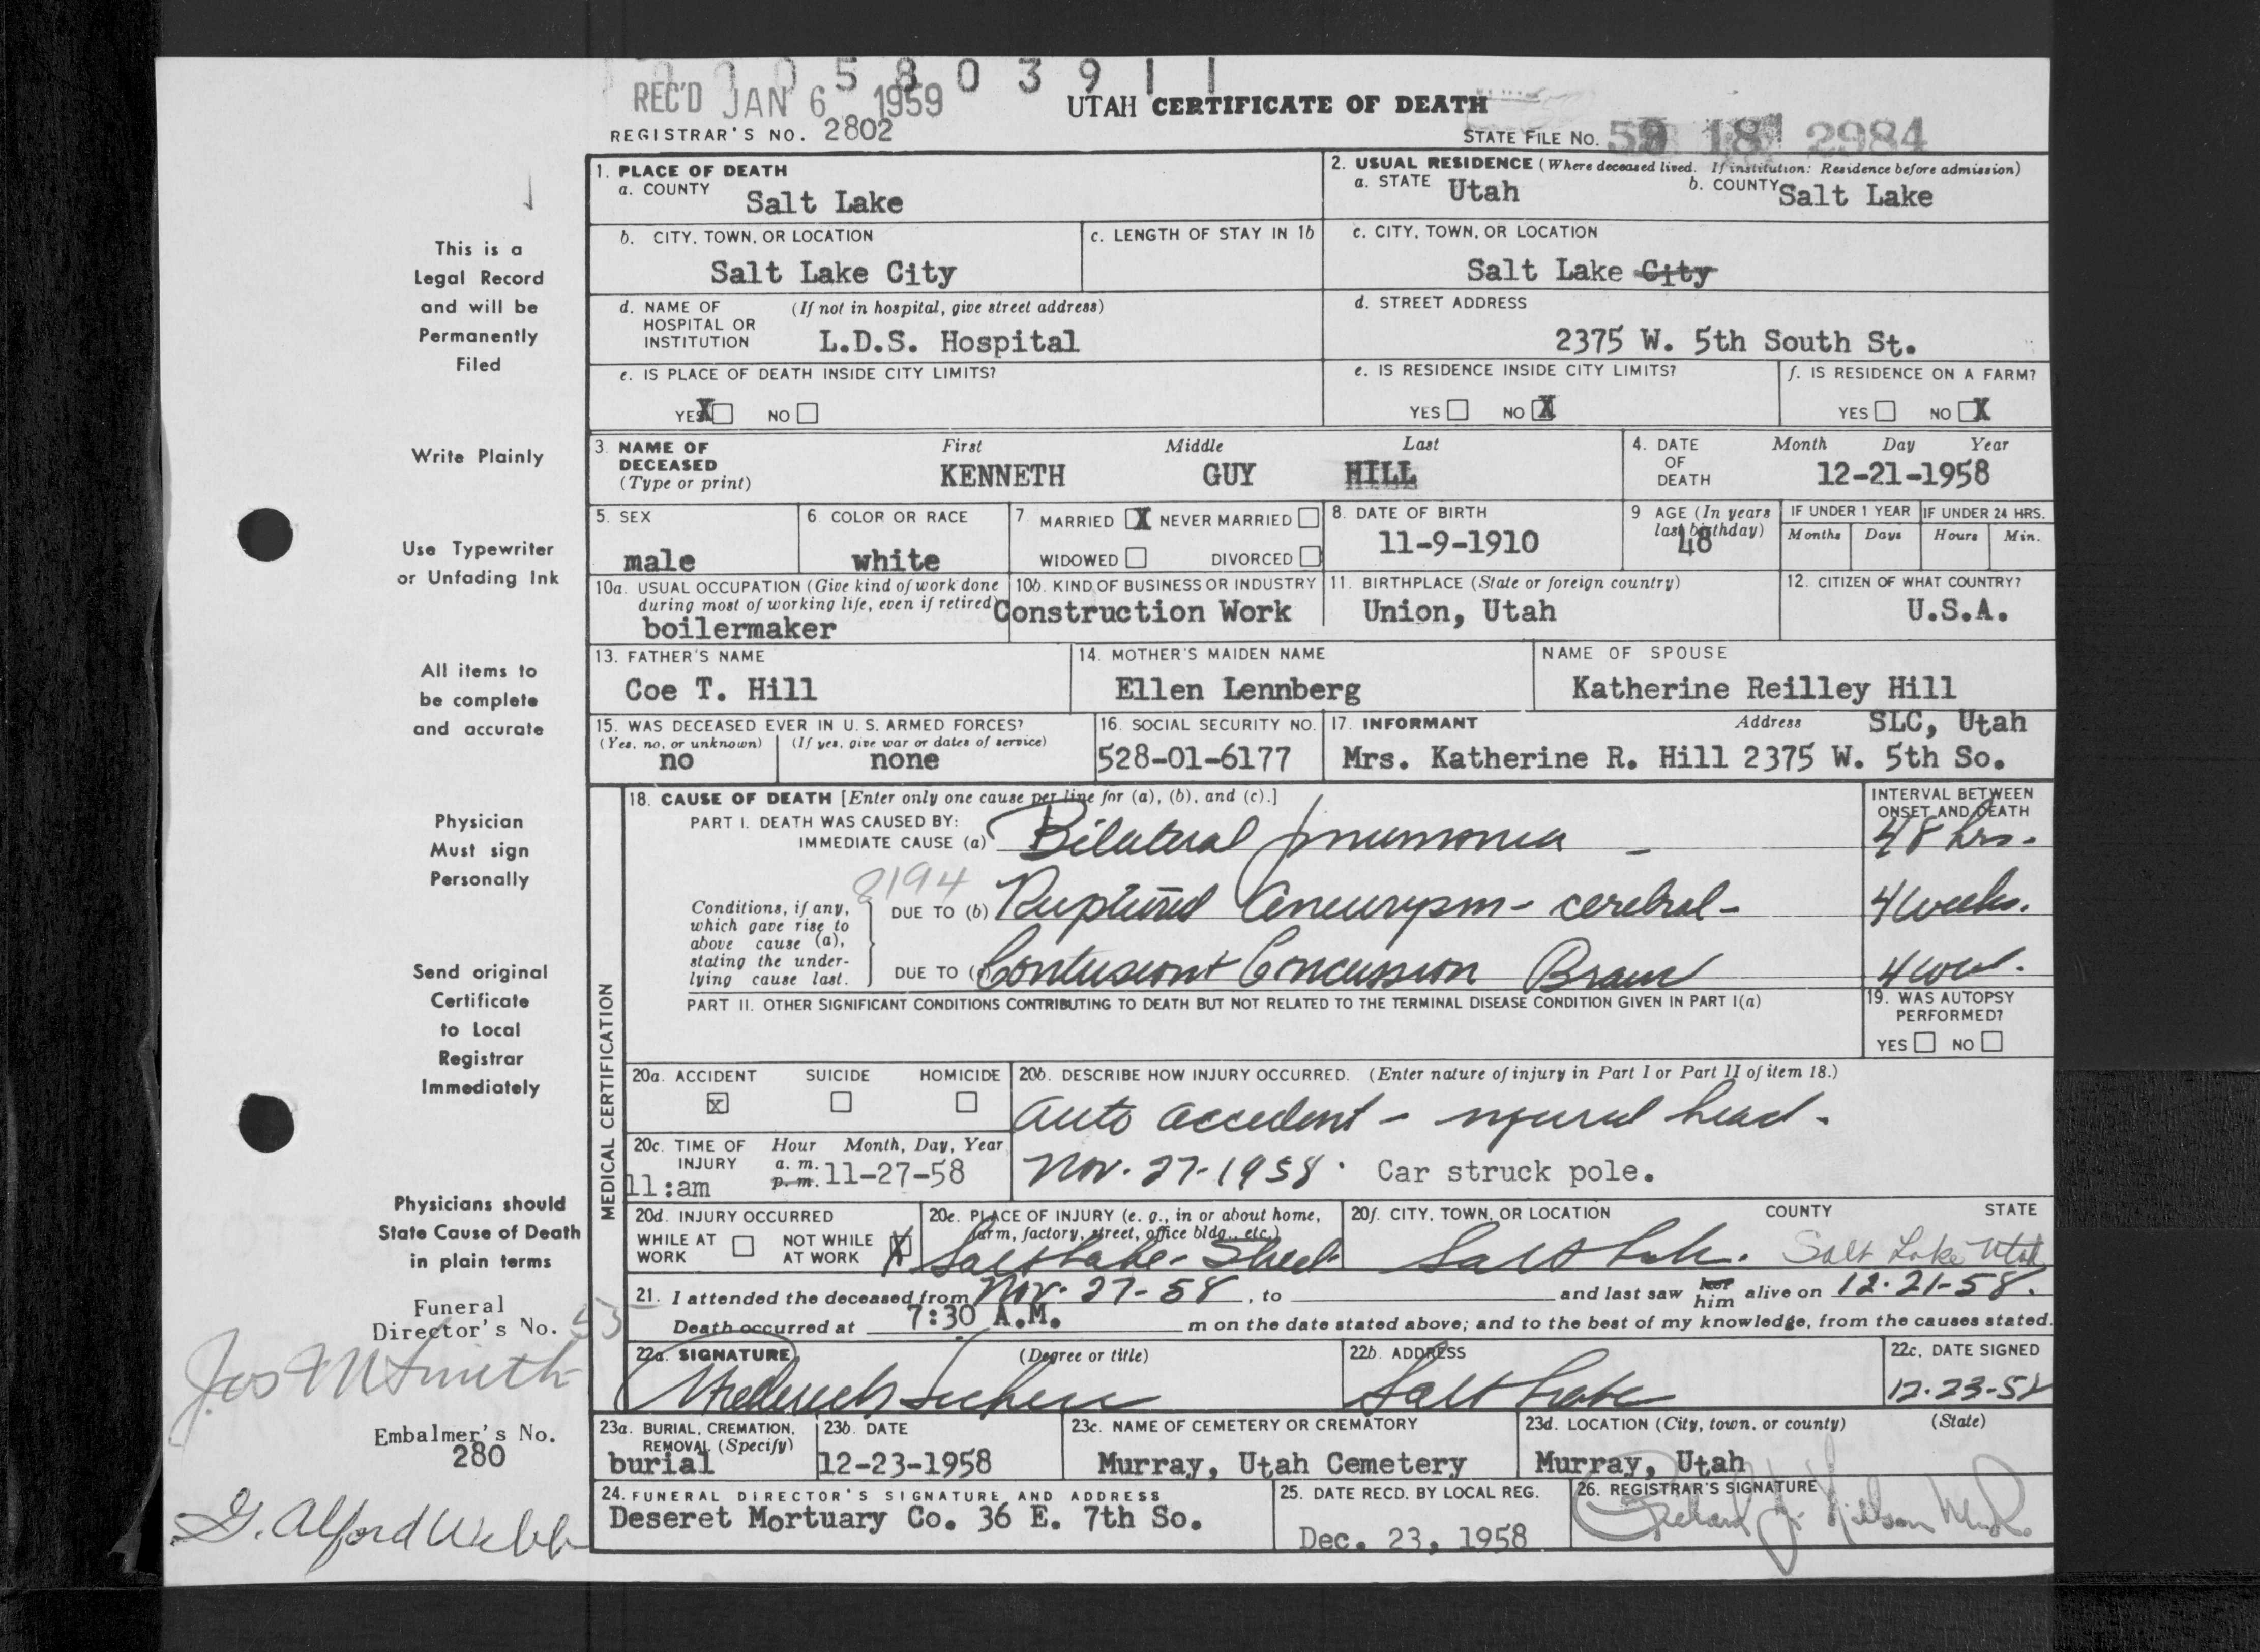 0 0 5 8 0 3 9 1 1
REC'D JAN 6 1959
UTAH CERTIFICATE OF DEATH
REGISTRAR'S NO. 2802
STATE FILE NO. 59 18 2984
1. PLACE OF DEATH
a. COUNTY Salt Lake
2. USUAL RESIDENCE (Where deceased lived. If institution: Residence before admission)
a. STATE Utah b. COUNTY Salt Lake
b. CITY, TOWN, OR LOCATION Salt Lake City
c. LENGTH OF STAY IN 1b
c. CITY, TOWN, OR LOCATION Salt Lake City
d. NAME OF HOSPITAL OR INSTITUTION (If not in hospital, give street address)
L.D.S. Hospital
d. STREET ADDRESS
2375 W. 5th South St.
e. IS PLACE OF DEATH INSIDE CITY LIMITS?
YES X NO
e. IS RESIDENCE INSIDE CITY LIMITS?
YES NO X
f. IS RESIDENCE ON A FARM?
YES NO X
3. NAME OF DECEASED (Type or print)
First Middle Last
KENNETH GUY HILL
4. DATE OF DEATH Month Day Year
12-21-1958
5. SEX male
6. COLOR OR RACE white
7. MARRIED X NEVER MARRIED
WIDOWED DIVORCED
8. DATE OF BIRTH
11-9-1910
9 AGE (In years last birthday) 48
IF UNDER 1 YEAR Months Days
IF UNDER 24 HRS. Hours Min.
10a. USUAL OCCUPATION (Give kind of work done during most of working life, even if retired)
boilermaker
10b. KIND OF BUSINESS OR INDUSTRY
Construction Work
11. BIRTHPLACE (State or foreign country)
Union, Utah
12. CITIZEN OF WHAT COUNTRY?
U.S.A.
13. FATHER'S NAME
Coe T. Hill
14. MOTHER'S MAIDEN NAME
Ellen Lennberg
NAME OF SPOUSE
Katherine Reilley Hill
15. WAS DECEASED EVER IN U. S. ARMED FORCES?
(Yes, no, or unknown) (If yes, give war or dates of service)
no none
16. SOCIAL SECURITY NO.
528-01-6177
17. INFORMANT Address SLC, Utah
Mrs. Katherine R. Hill 2375 W. 5th So.
MEDICAL CERTIFICATION
18. CAUSE OF DEATH [Enter only one cause per line for (a), (b), and (c).]
INTERVAL BETWEEN ONSET AND DEATH
PART I. DEATH WAS CAUSED BY:
IMMEDIATE CAUSE (a) Bilateral pneumonia - 48 hrs.
8194
Conditions, if any, which gave rise to above cause (a), stating the underlying cause last.
DUE TO (b) Ruptured Aneurysm - cerebral - 4 weeks.
DUE TO (c) Contusion + Concussion Brain 4 wee.
PART II. OTHER SIGNIFICANT CONDITIONS CONTRIBUTING TO DEATH BUT NOT RELATED TO THE TERMINAL DISEASE CONDITION GIVEN IN PART I(a)
19. WAS AUTOPSY PERFORMED?
YES NO
20a. ACCIDENT SUICIDE HOMICIDE
X
20b. DESCRIBE HOW INJURY OCCURRED. (Enter nature of injury in Part I or Part II of item 18.)
Auto accident - injured head -
Nov. 27-1958. Car struck pole.
20c. TIME OF INJURY Hour Month, Day, Year
a. m. p. m.
11:am 11-27-58
20d. INJURY OCCURRED
WHILE AT WORK NOT WHILE AT WORK X
20e. PLACE OF INJURY (e. g., in or about home, farm, factory, street, office bldg., etc.)
Salt Lake - Street
20f. CITY, TOWN, OR LOCATION COUNTY STATE
Salt Lake. Salt Lake Utah
21. I attended the deceased from Nov. 27-58, to and last saw her him alive on 12-21-58.
Death occurred at 7:30 A.M. m on the date stated above; and to the best of my knowledge, from the causes stated.
22a. SIGNATURE (Degree or title)
22b. ADDRESS
Salt Lake
22c. DATE SIGNED
12-23-58
23a. BURIAL, CREMATION, REMOVAL (Specify)
burial
23b. DATE
12-23-1958
23c. NAME OF CEMETERY OR CREMATORY
Murray, Utah Cemetery
23d. LOCATION (City, town, or county) (State)
Murray, Utah
24. FUNERAL DIRECTOR'S SIGNATURE AND ADDRESS
Deseret Mortuary Co. 36 E. 7th So.
25. DATE RECD. BY LOCAL REG.
Dec. 23, 1958
26. REGISTRAR'S SIGNATURE
This is a
Legal Record
and will be
Permanently
Filed
Write Plainly
Use Typewriter
or Unfading Ink
All items to
be complete
and accurate
Physician
Must sign
Personally
Send original
Certificate
to Local
Registrar
Immediately
Physicians should
State Cause of Death
in plain terms
Funeral
Director's No. 53
Jos M Smith
Embalmer's No.
280
G. Alford Webb